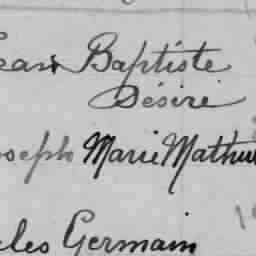 Jean Baptiste
Désiré
Joseph Marie Mathu
Germain